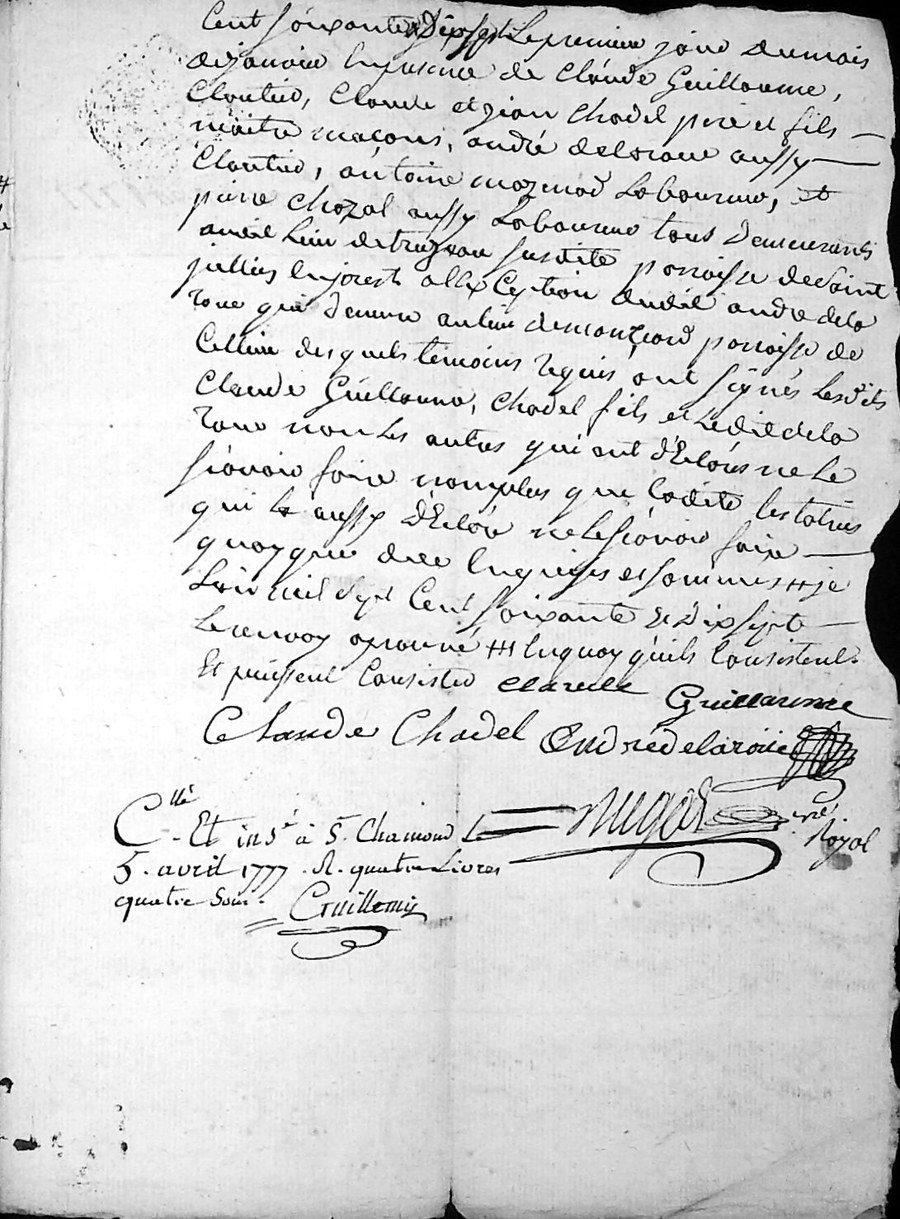 Cent soixante & Dixsept Le premier jour du mois
de janvier En presence de Claude Guillaume,
Cloutier, Claude et jean Chadel pere et fils
maitre maçons, andré delaroue aussy
Cloutier, antoine marmod Laboureur, et
pierre Chazal aussy Laboureur tous Demeurants
audit Lieu de susdite parroisse de Saint
jullien En jarest a l'exCeption dudit andré dela
roue qui demeure au lieu de parroisse de
Cellieu desquels temoins requis ont signés Lesdits
Claude Guillaume, Chadel fils et Ledit dela
roue non Les autres qui ont d'Eclarés ne Le
sçavoir faire non plus que Ladite testatrice
qui a aussy d'Eclaré ne le sçavoir faire
quoy que de ce Enquis et sommés # je
Lan mil sept Cent soixante & Dixsept
Le renvoy aprouvé ## En quoy quils Consistent
Et puissent Consister claude Guillaume
Claude Chadel Endrédelaroüe
C.llé Et ins.é à S. Chamond Le
5. avril 1777. R. quatre Livres
quatre Sous. Guillemin
nre Royal